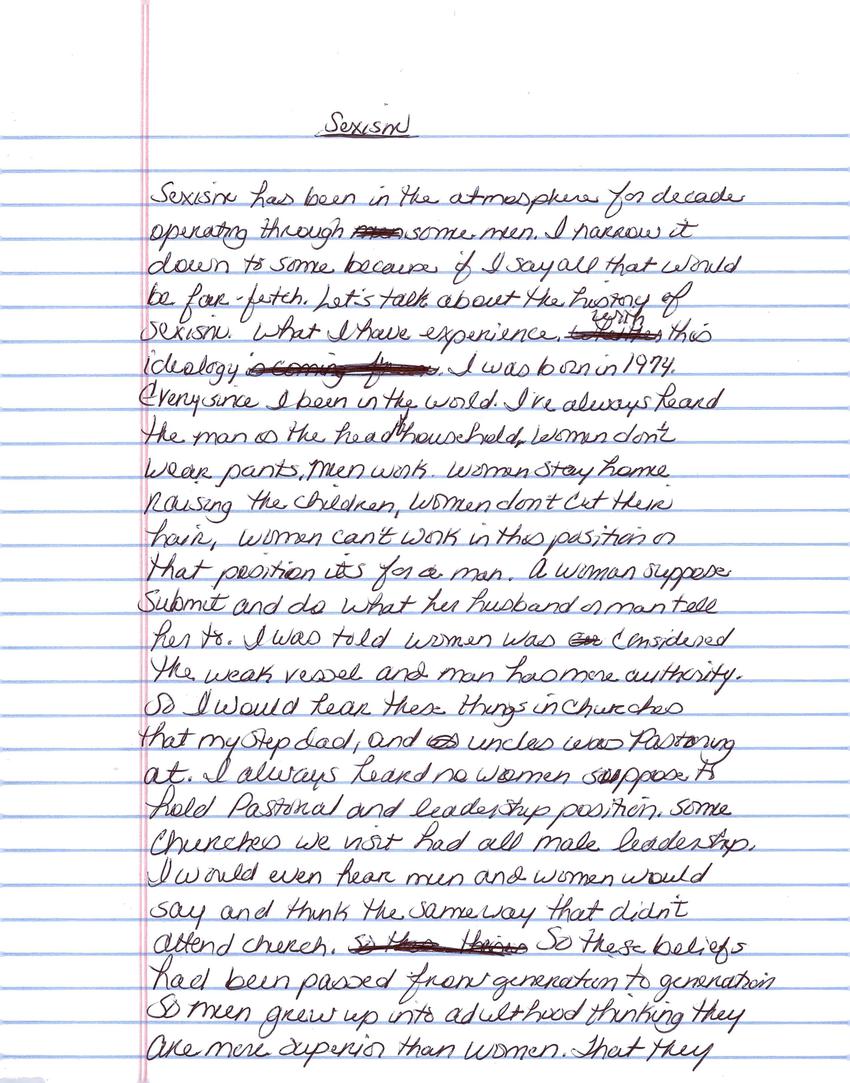 Sexism
Sexism has been in the atmosphere for decade
operating through some men. I narrow it
down to some because if I say all that would
be far-fetch. Let's talk about the history of
sexism. What I have experience. with this
ideology. I was born in 1974.
Every since I been in the world. I've always heard
the man is the head of household, Women don't
wear pants, Men work. Women stay home
raising the children, Women don't cut their
hair, Women can't work in this position or
that position its for a man. A woman suppose
submit and do what her husband or man tell
her to. I was told women was considered
the weak vessel and man has more authority.
So I would hear these things in churches
that my step dad, and uncles was Pastoring
at. I always heard no women suppose to
hold Pastoral and leadership position. Some
Churches we visit had all male leadership.
I would even hear men and women would
say and think the same way that didn't
attend church. So these beliefs
had been passed from generation to generation
So men grew up into adulthood thinking they
are more superior than women. That they